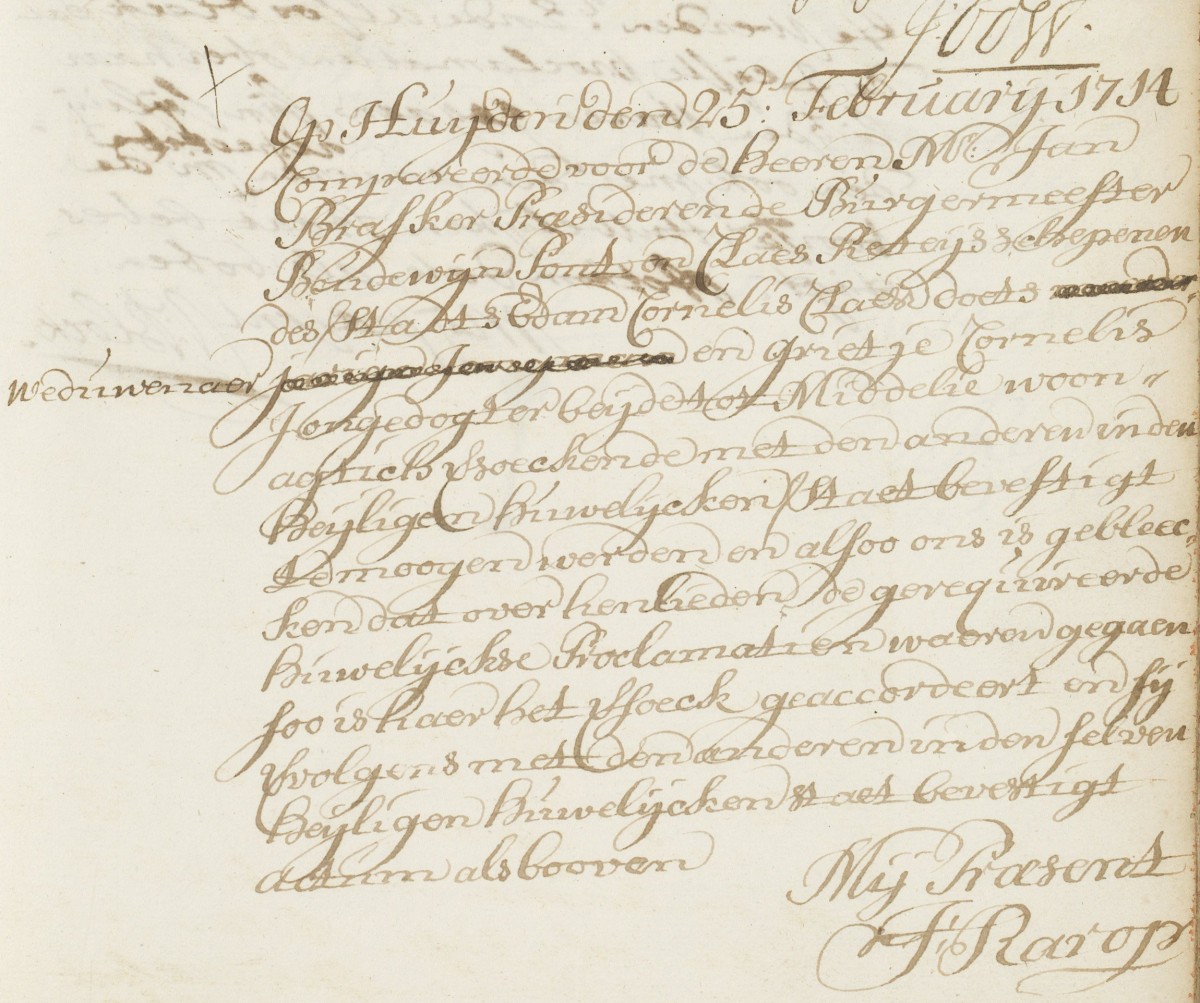 Op Huijden den 25: Februarij 1714
Compareerde voor de heeren Mr: Jan
Brasker Præsiderende Burgermeester
Boudewijn Pont en Claes Reteijs schepenen
des Stadts Edam Cornelis Claesz doets
weduwenaer en grietje Cornelis
Jongedogter beijde tot Middelie woon-
agtich versoeckende met den anderen in den
heijligen huwelijcken Staet bevestigt
te moogen werden en alsoo ons is gebleec-
ken dat over henlieden de gerequireerde
huwelijckse Proclamatien waeren gegaen
soo is haer het versoeck geaccordeert en sij
vervolgens met den anderen in den selven
heijligen huwelijcken staet bevestigt
actum als booven
Mij Præsent